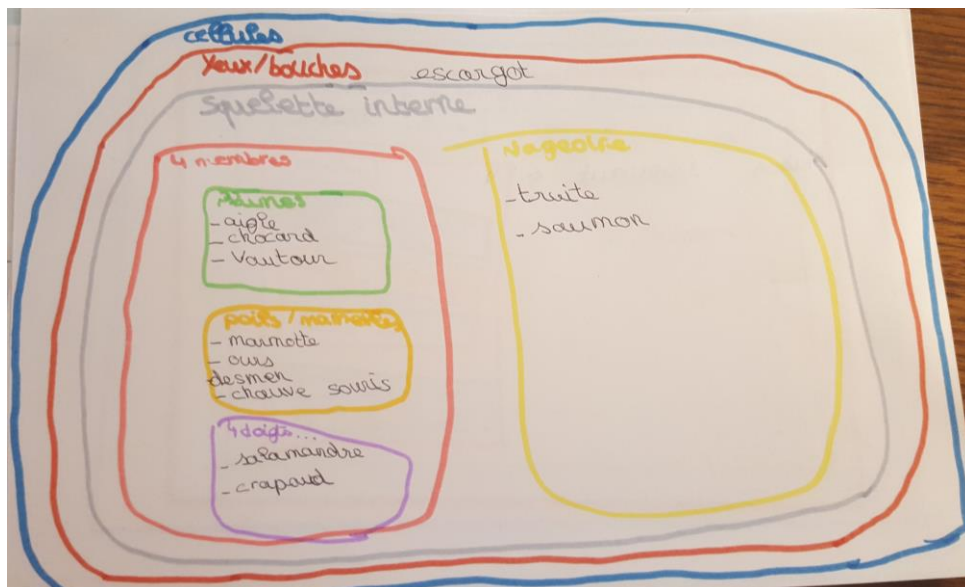 cellules
Yeux/bouches escargot
squelette interne
4 membres
plumes
- aigle
- chocard
- Vautour
poils/mamelles
- marmotte
- ours
desmen
- chauve souris
4 doigts...
- salamandre
- crapaud
Nageoire
- truite
- saumon